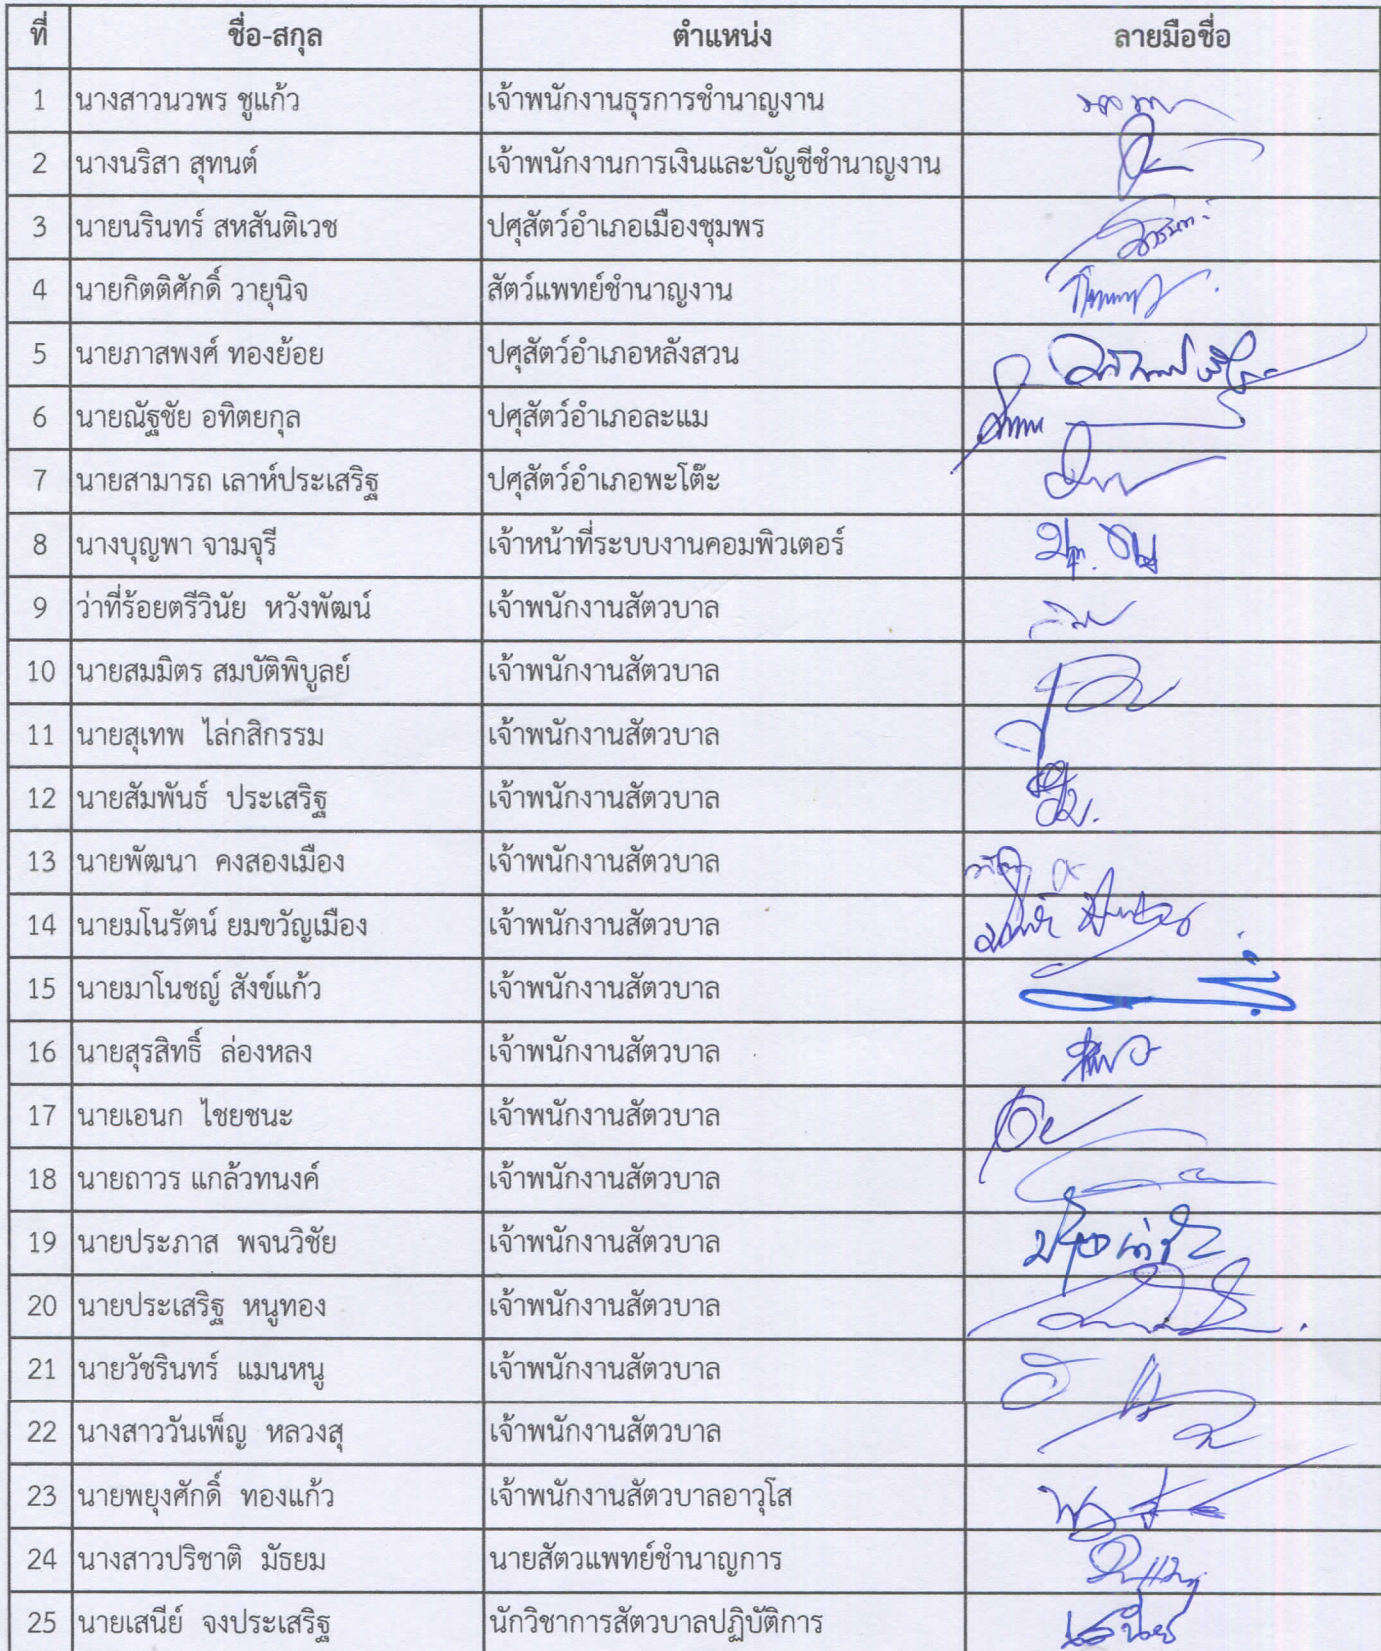 ที่ ชื่อ-สกุล ตำแหน่ง ลายมือชื่อ
1 นางสาวนวพร ชูแก้ว เจ้าพนักงานธุรการชำนาญงาน
2 นางนริสา สุทนต์ เจ้าพนักงานการเงินและบัญชีชำนาญงาน
3 นายนรินทร์ สหสันติเวช ปศุสัตว์อำเภอเมืองชุมพร
4 นายกิตติศักดิ์ วายุนิจ สัตว์แพทย์ชำนาญงาน
5 นายภาสพงศ์ ทองย้อย ปศุสัตว์อำเภอหลังสวน
6 นายณัฐชัย อทิตยกุล ปศุสัตว์อำเภอละแม
7 นายสามารถ เลาห์ประเสริฐ ปศุสัตว์อำเภอพะโต๊ะ
8 นางบุญพา จามจุรี เจ้าหน้าที่ระบบงานคอมพิวเตอร์
9 ว่าที่ร้อยตรีวินัย หวังพัฒน์ เจ้าพนักงานสัตวบาล
10 นายสมมิตร สมบัติพิบูลย์ เจ้าพนักงานสัตวบาล
11 นายสุเทพ ไล่กสิกรรม เจ้าพนักงานสัตวบาล
12 นายสัมพันธ์ ประเสริฐ เจ้าพนักงานสัตวบาล
13 นายพัฒนา คงสองเมือง เจ้าพนักงานสัตวบาล
14 นายมโนรัตน์ ยมขวัญเมือง เจ้าพนักงานสัตวบาล
15 นายมาโนชญ์ สังข์แก้ว เจ้าพนักงานสัตวบาล
16 นายสุรสิทธิ์ ล่องหลง เจ้าพนักงานสัตวบาล
17 นายเอนก ไชยชนะ เจ้าพนักงานสัตวบาล
18 นายถาวร แกล้วทนงค์ เจ้าพนักงานสัตวบาล
19 นายประภาส พจนวิชัย เจ้าพนักงานสัตวบาล
20 นายประเสริฐ หนูทอง เจ้าพนักงานสัตวบาล
21 นายวัชรินทร์ แมนหนู เจ้าพนักงานสัตวบาล
22 นางสาววันเพ็ญ หลวงสุ เจ้าพนักงานสัตวบาล
23 นายพยุงศักดิ์ ทองแก้ว เจ้าพนักงานสัตวบาลอาวุโส
24 นางสาวปริชาติ มัธยม นายสัตวแพทย์ชำนาญการ
25 นายเสนีย์ จงประเสริฐ นักวิชาการสัตวบาลปฏิบัติการ เสนีย์